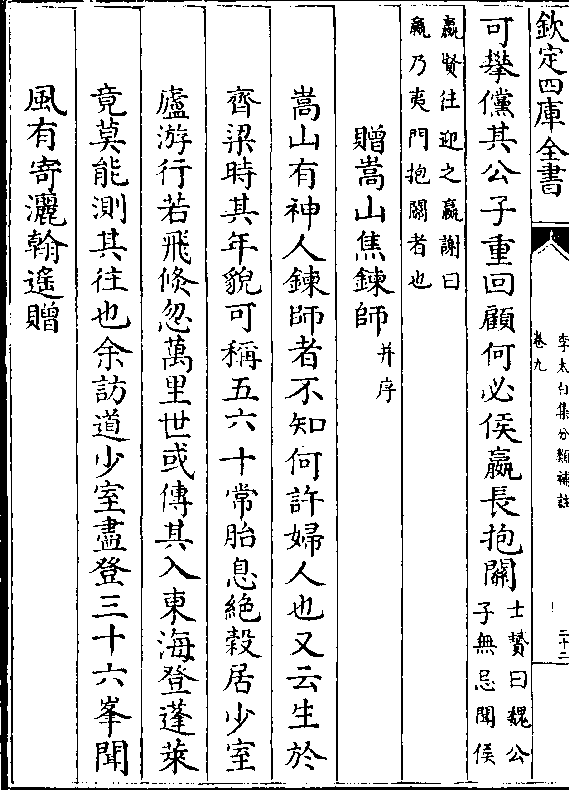 欽定四庫全書
李太白集分類補註
卷九
二十二
可攀儻其公子重回顧何必侯嬴長抱關
士贇曰魏公
子無忌聞侯
嬴賢往迎之嬴謝曰
嬴乃夷門抱關者也
贈嵩山焦鍊師
并序
嵩山有神人鍊師者不知何許婦人也又云生於
齊梁時其年貌可稱五六十常胎息絶穀居少室
廬游行若飛倐忽萬里世或傳其入東海登蓬萊
竟莫能測其往也余訪道少室盡登三十六峯聞
風有寄灑翰遙贈